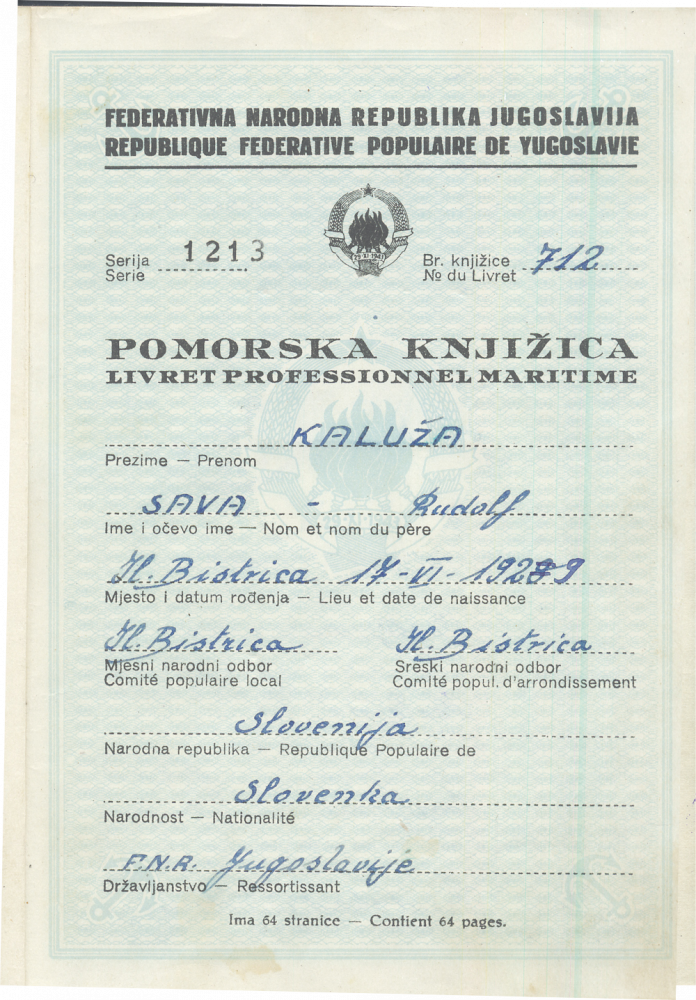 FEDERATIVNA NARODNA REPUBLIKA JUGOSLAVIJA
REPUBLIQUE FEDERATIVE POPULAIRE DE YUGOSLAVIE
29·XI·1943
Serija 1213
Serie
Br. knjižice 712
№ du Livret
POMORSKA KNJIŽICA
LIVRET PROFESSIONNEL MARITIME
KALUŽA
Prezime — Prenom
SAVA - Rudolf
Ime i očevo ime — Nom et nom du père
Il. Bistrica 17-VI-1929
Mjesto i datum rođenja — Lieu et date de naissance
Il. Bistrica Il. Bistrica
Mjesni narodni odbor Sreski narodni odbor
Comité populaire local Comité popul. d'arrondissement
Slovenija
Narodna republika — Republique Populaire de
Slovenka
Narodnost — Nationalité
F.N.R. Jugoslavije
Državljanstvo — Ressortissant
Ima 64 stranice — Contient 64 pages.